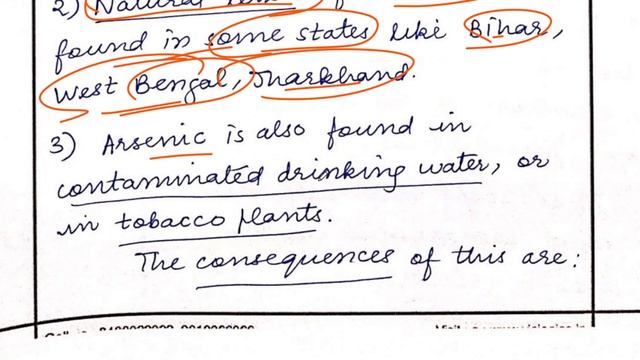 2) Natural
found in some states like Bihar,
West Bengal, Jharkhand.
3) Arsenic is also found in
contaminated drinking water, or
in tobacco plants.
The consequences of this are: